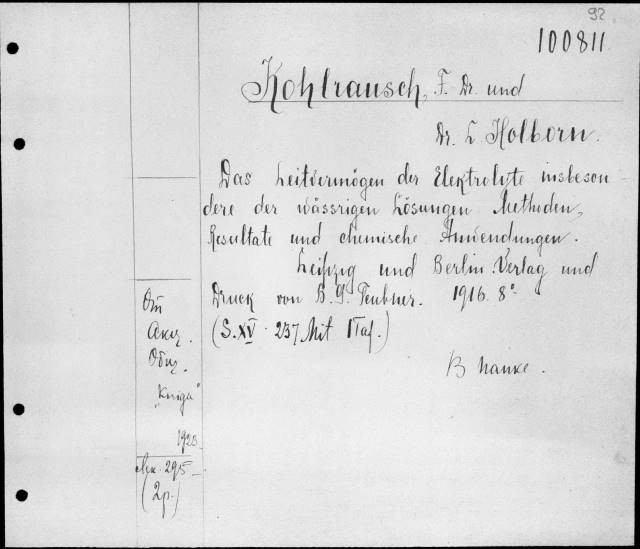 92.
100811
Kohlrausch, F. Dr. und
Dr. L. Holborn.
Das Leitvermögen der Elektrolyte insbeson-
dere der wässrigen Lösungen. Methoden,
Resultate und chemische Anwendungen.
Leipzig und Berlin. Verlag und
Druck von B. G. Teubner. 1916. 8°
(S. XV. 237 Mit 1 Taf.)
В папке.
От
Акц.
Общ.
„Книга"
295
(2р.)